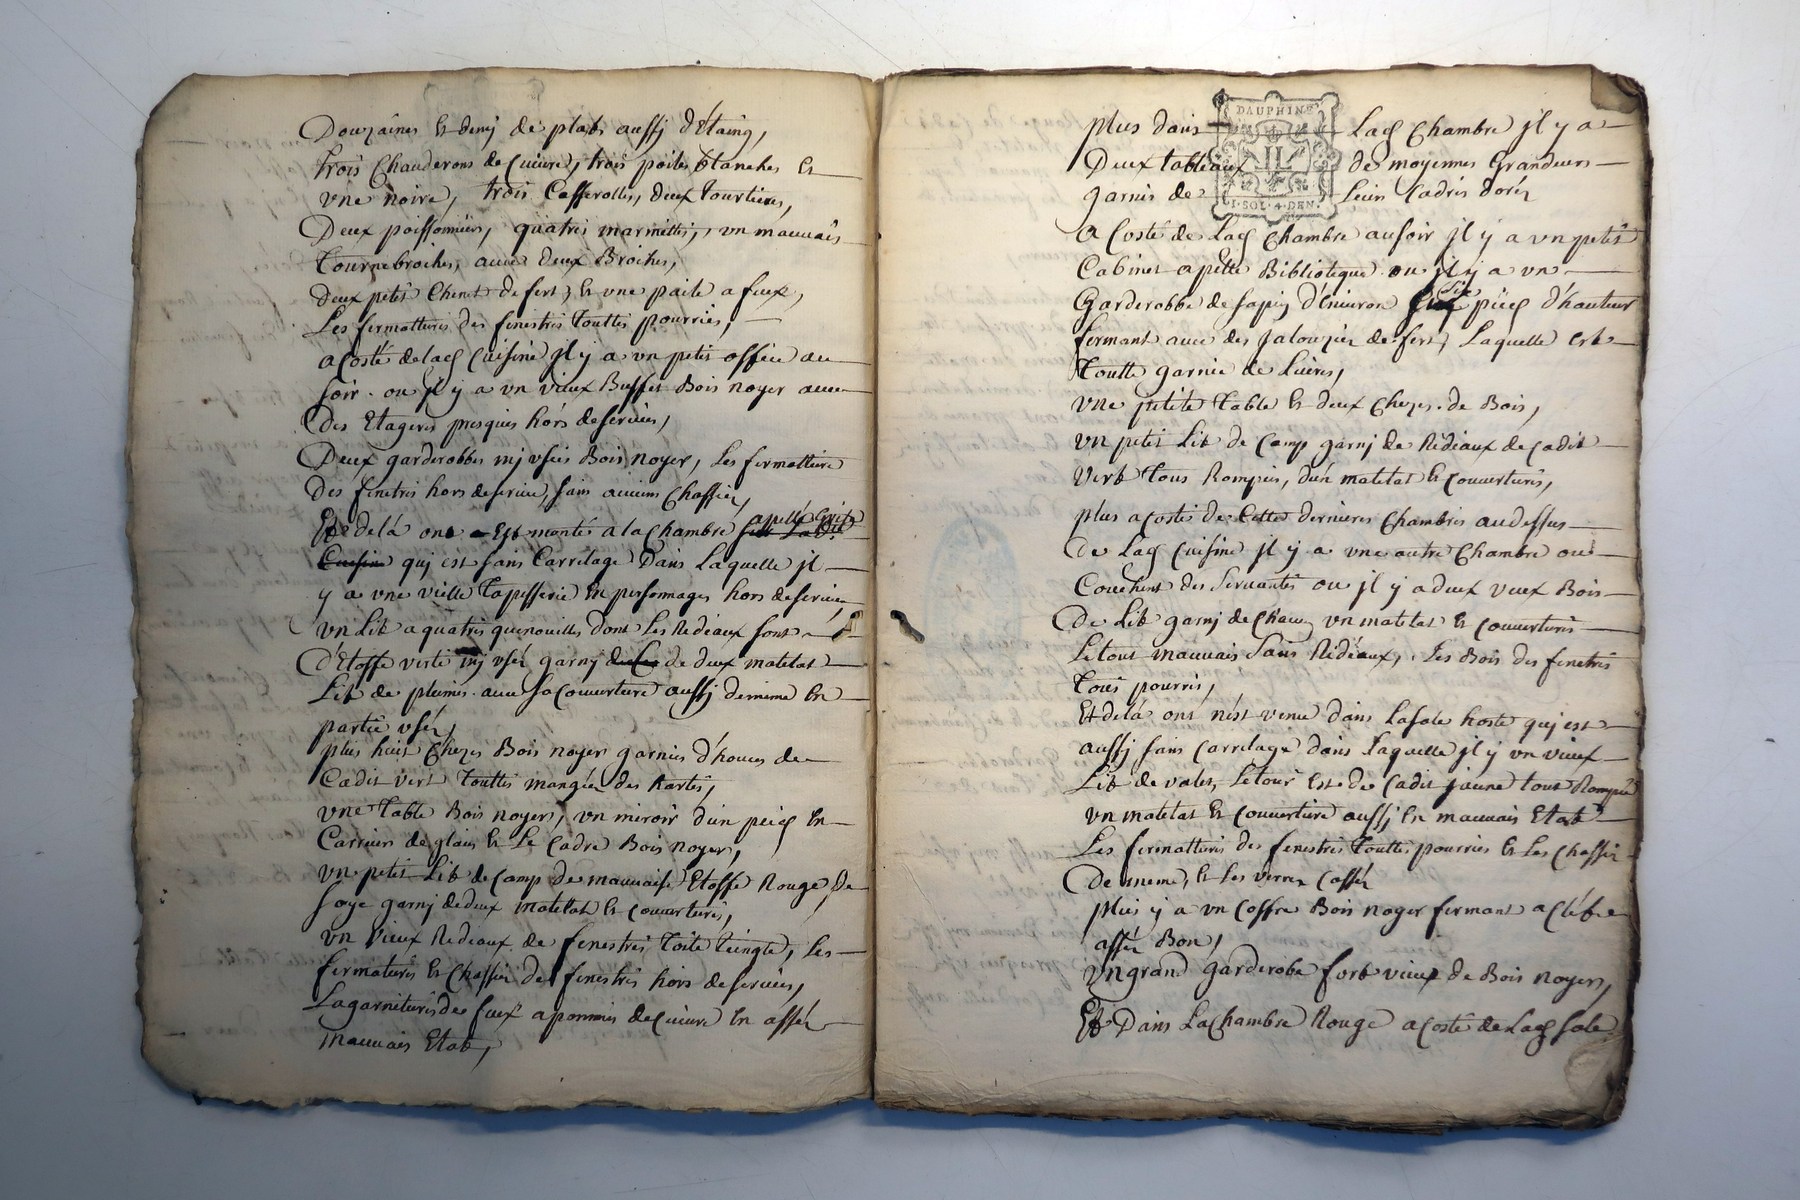 Douzaines et demy de plats aussy d'Etaing,
trois Chauderons de Cuivre, trois poiles blanches et
vne noire, trois Casserolles, deux tourtieres,
Deux poissonniers, quatres marmittes, vn mauuais
tournebroches, auec deux Broches,
Deux petits Chenet de fert, et vne paile a feux,
Les fermattures des fenestres touttes pourries,
acosté de laq Cuisine jl y a vn petit office au
soir ou jl y a vn vieux Buffet Bois noyer auec
des Etageres presques hors deseruice,
Deux garderobbes mj vsées Bois noyer, Les fermatture
des fenetres hors deseruice, sans aucuns Chassier,
Et delà one Est monté a la chambre apellé
Cuisine quj est sans Carrelage Dans Laquelle jl
y a vne vielle tapisserie En personnages hors deseruice
vn Lit a quatres quenouilles dont Les Rideaux sont
d'Etoffe verte mj vsée garnj de deux matelat
Lit de plumes auec sa couuerture aussj dememe En
partie vsée,
plus huit Chezes Bois noyer garnies d'houces de
Cadit vert touttes mangées des Rartes,
vne Table Bois noyer, vn miroir d'un peicq En
Carriers de glais et Le Cadre Bois noyer,
vn petit Lit de Camp de mauuaise Etoffe Rouge, de
soye garnj dedeux matelat et couuertures,
vn vieux Rideaux de fenestres toile teingte, Les
fermatures et Chassier des fenestres hors deseruices,
Lagarnitures de feux a pommes decuiure En assée
mauuais Etat,
plus dans Laq Chambre jl y a
DAUPHINÉ
Deux tableaux de moyennes Grandeurs
garnis de Leurs Cadres dorée
I·SOL·4·DEN·
a Costé de Laq Chambre ausoir jl y a vn petit
Cabinet apellé Biblioteque ou jl y a vn
Garderobbe de sapin d'Enuiron six pieq d'hauteur
fermant auec des Jalouzier de fert, Laquelle est
toutte garnie de Liures,
vne petite table et deux Chezes de Bois,
vn petit Lit de Camp garnj de Rideaux de cadit
Vert tous Rompues, d'un matelat et Couuertures,
plus acosté de Cette derniere Chambre audessus
de Laq Cuisine jl y a vne autre Chambre ou
Couchent des Seruantes ou jl y a deux vieux Bois
de Lit garnj de vn matelat et couuertures
Letout mauuais sans Rideaux, Les Bois des fenetres
tous pourris,
Et delà ont n'est venue dans Lasale hoste quj est
aussj sans Carrelage dans Laquelle jl y vn vieux
Lit de valet, Letour Est de Cadit jaune tout Rompue
vn matelat et couuerture aussj En mauuais Etat
Les fermattures des fenestres touttes pourries et Les Chassier
De meme, et Les verres Cassée
plus y a vn Coffre Bois noyer fermant a clef
assée Bon,
vn grand garderobe fort vieux de Bois noyer,
Et Dans LaChambre Rouge acosté de Laq sale